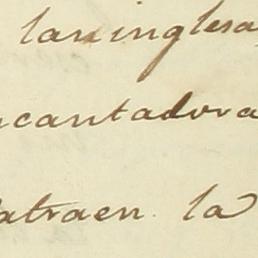 laninglesa
ncantadora
atraen. la